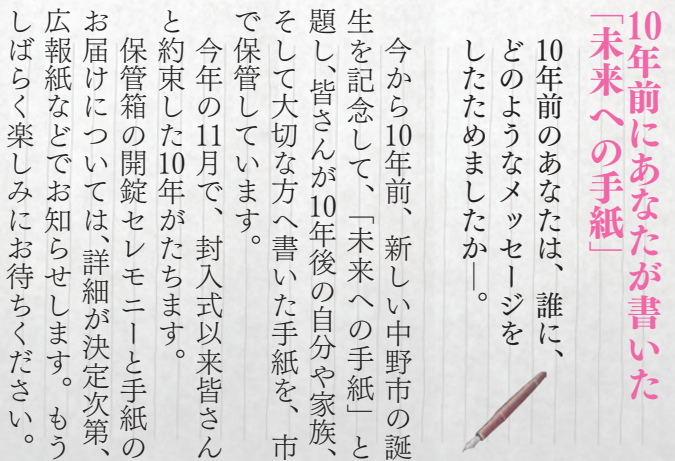 10年前にあなたが書いた
「未来への手紙」
10年前のあなたは、誰に、
どのようなメッセージを
したためましたか―。
今から10年前、新しい中野市の誕
生を記念して、「未来への手紙」と
題し、皆さんが10年後の自分や家族、
そして大切な方へ書いた手紙を、市
で保管しています。
今年の11月で、封入式以来皆さん
と約束した10年がたちます。
保管箱の開錠セレモニーと手紙の
お届けについては、詳細が決定次第、
広報紙などでお知らせします。もう
しばらく楽しみにお待ちください。